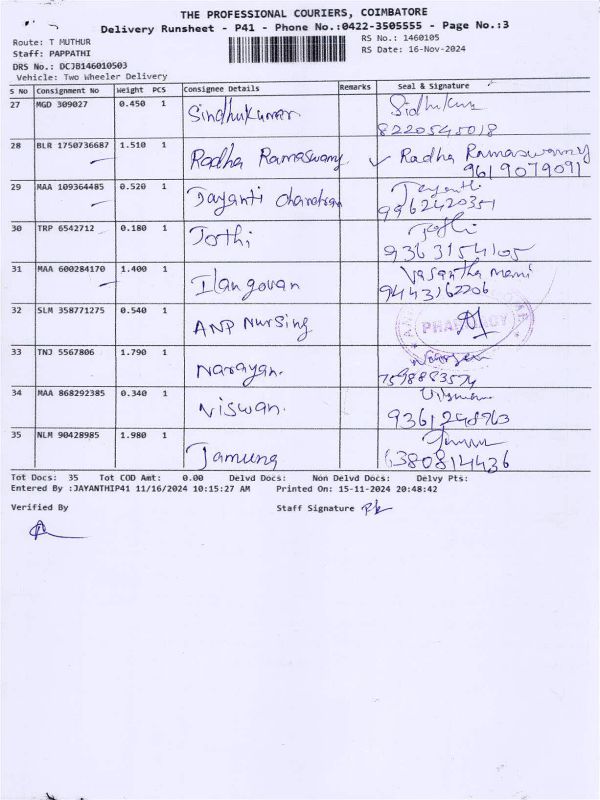 THE PROFESSIONAL COURIERS, COIMBATORE
Delivery Runsheet - P41 - Phone No.:0422-3505555 - Page No.:3
Route: T MUTHUR
RS No.: 1460105
Staff: PAPPATHI
RS Date: 16-Nov-2024
DRS No.: DCJB146010503
Vehicle: Two Wheeler Delivery
S No Consignment No Weight PCS Consignee Details Remarks Seal & Signature
27 MGD 309027 0.450 1 Sindhukumar
8220545018
28 BLR 1750736687 1.510 1 Radha Ramaswamy Radha Ramaswamy
9619079091
29 MAA 109364485 0.520 1 Jayanti Chandran Jayanthi
9962420351
30 TRP 6542712 0.180 1 Jothi Jothi
9363154105
31 MAA 600284170 1.400 1 Ilangovan Vasantha mami
9443162206
32 SLM 358771275 0.540 1 ANP Nursing
PHARMACY
33 TNJ 5567806 1.790 1 Narayan.
7598853574
34 MAA 868292385 0.340 1 Viswan.
9361248963
35 NLM 90428985 1.980 1 Jamuna
6380814436
Tot Docs: 35 Tot COD Amt: 0.00 Delvd Docs: Non Delvd Docs: Delvy Pts:
Entered By :JAYANTHIP41 11/16/2024 10:15:27 AM Printed On: 15-11-2024 20:48:42
Verified By Staff Signature